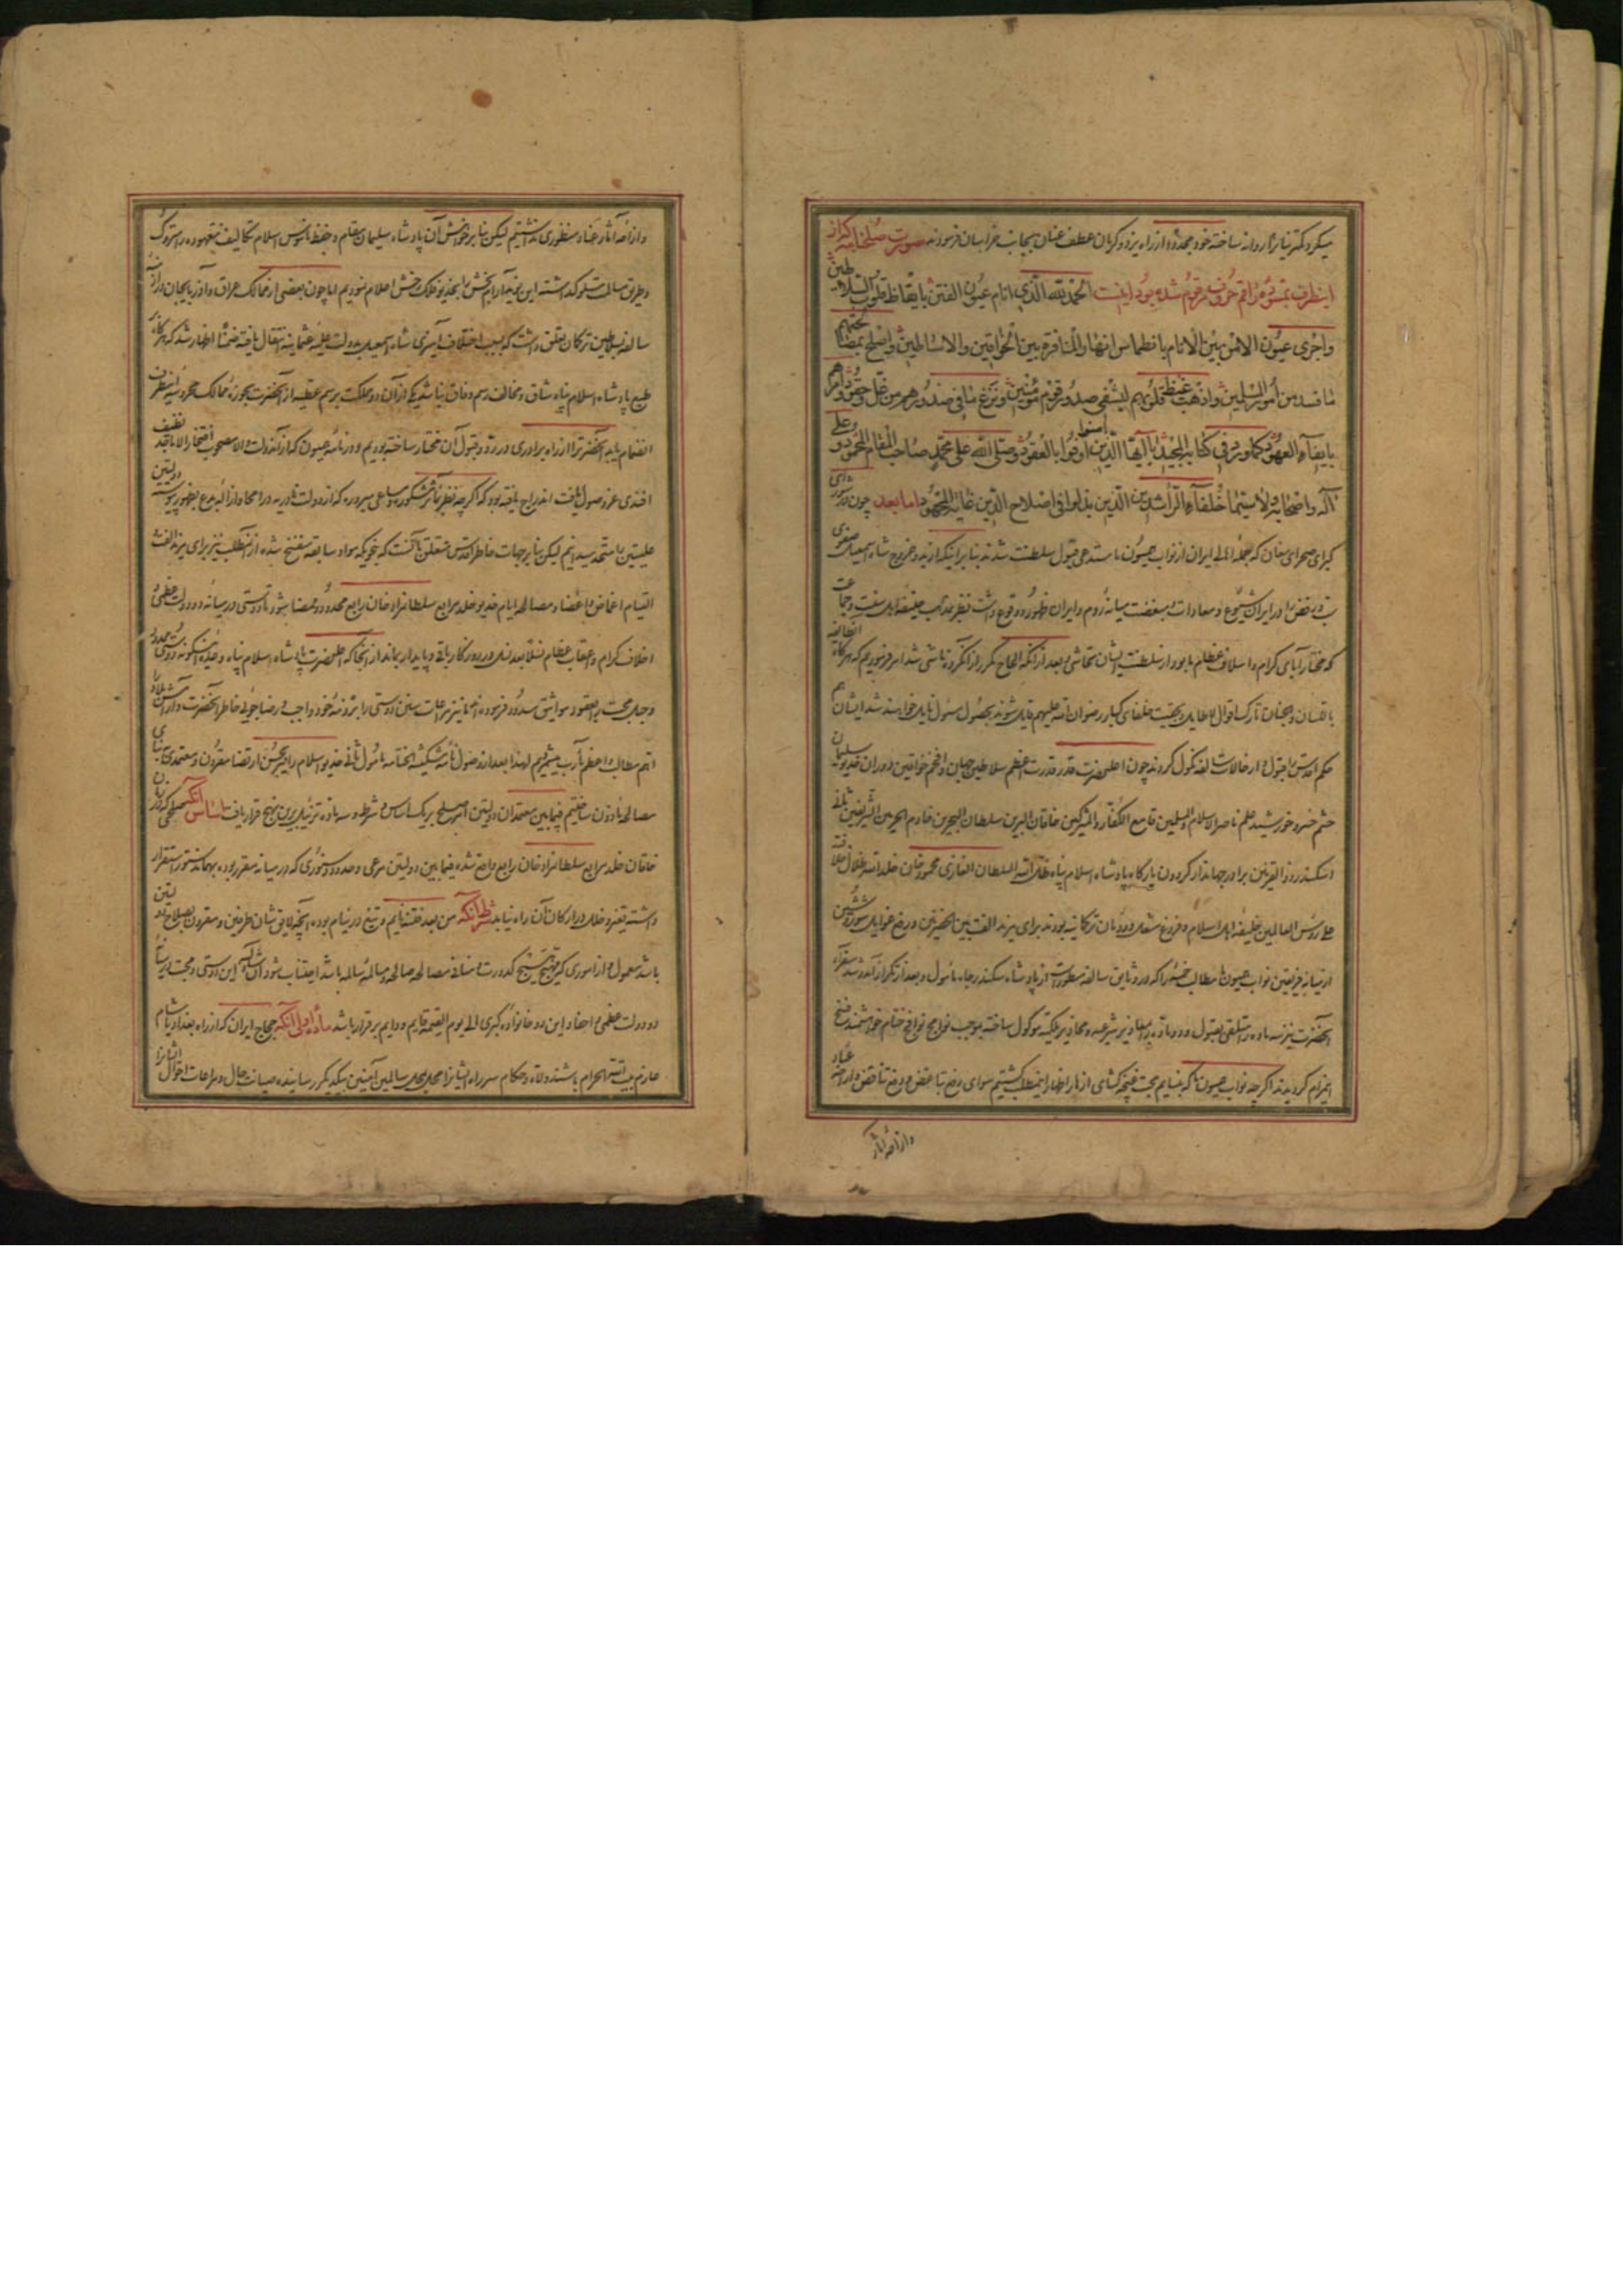 میکرد کمترینان را روانه ساخته خود مجدداً از راه یزد و کرمان عطف عنان بجانب خراسان فرمودند صورت صلحنامه که از
اینطرف بتسوید راقم حروف مرقوم شده بود اینست الحمدلله الذی انام عیون الفتن بایقاظ قلوب السلاطین
واجری عیون الامن بین الانام بانطماس انهار المنافرة بین الخواقین والاساطین واصلح بمصالحتهم
ما فسد من امور المسلمین واذهب غیظ قلوبهم لیشفی صدور قوم مؤمنین ونزع ما فی صدورهم من غل وحقود وامرهم
بایفاء العهود کما ورد فی کتابه المجید یا ایها الذین آمنوا اوفوا بالعقود وصلی الله علی محمد صاحب المقام المحمود وعلی
آله واصحابه لاسیما خلفاء الراشدین الذین بذلوا فی اصلاح الدین غایة المجهود اما بعد چون در شورای
کبرای صحرای مغان که جمله اهالی ایران از نواب همیون ما مستدعی قبول سلطنت شدند بنا بر اینکه از بدو خروج شاه اسمعیل صفوی
سب و رفض در ایران شیوع و معادات و مبغضت میانه روم و ایران ظهور و وقوع داشت نظر بمذهب حنیف اهل سنت و جماعت
که مختار آبای کرام و اسلاف عظام ما بود از سلطنت ایشان تحاشی و بعد از آنکه الحاح مکرر از آنگروه ناشی شد امر فرمودیم که هرگاه آنطایفه
باللسان و الجنان تارک اقوال لاطایل و بحقیت خلفای کبار رضوان الله علیهم قایل شوند بحصول مسئول نایل خواهند شد ایشان هم
حکم اقدس را قبول و از حالات سالفه نکول کردند چون اعلیحضرت قدر قدرت اعظم سلاطین جهان و افخم خواقین دوران خدیو سلیمان
حشم خسرو خورشید علم ناصر الاسلام والمسلمین قامع الکفار والمشرکین خاقان البرین سلطان البحرین خادم الحرمین الشریفین ثانی
اسکندر ذوالقرنین برادر جهاندار گردون بارگاه پادشاه اسلام پناه ظل الله السلطان الغازی محمود خان خلد الله ظلال خلافته
علی رؤس العالمین خلیفه اهل اسلام و فروغ مشعل دودمان ترکمانیه بودند برای مزید الفت بین الحضرتین و رفع غوایل شور و شین
از میانه فریقین نواب همیون ما مطالب خمسه را که در وثایق سالفه مسطور است از پادشاه سکندر جاه مأمول و بعد از تکرار آمد و شد سفراء
آنحضرت نیز سه ماده را متلقی بقبول و دو ماده را بمعاذیر شرعیه و محاذیر ملکیه موکول ساخته بموجب نوامج نوافح ختام خواهشمند فسخ
اینمرام گردیدند اگر چه نواب همیون ما که بنسایم محبت غنچه گشای ازهار اظهار اینمطلب گشتیم سوای رفع تباغض و دفع تناقض و اراحه عباد
و ازاحه آثار
و ازاحه آثار عناد منظوری نداشتیم لیکن بنا بر خواهش آن پادشاه سلیمان مقام و حفظ ناموس اسلام تکالیف معهوده را متروک
و طریق مسالمت مسلوک داشته این تمنای آرام بخش را بخدیو فلک رخش اعلام نمودیم اما چون بعضی از ممالک عراق و آذربایجان در ازمنه
سالفه بسلاطین ترکمان تعلق داشت که بسبب اختلاف آمیزی شاه اسمعیل بدولت علیه عثمانیه انتقال یافته ضمناً اظهار شد که هرگاه بر
طبع پادشاه اسلام پناه شاق و مخالف رسم وفاق نباشد یکی از آن دو مملکت برسم عطیه از آنحضرت بحوزه ممالک محروسه اینطرف
انضمام یابد آنحضرت را از راه برادری در رد و قبول آن مختار ساخته بودیم و در نامه همیون که از آندولت والا مصحوب افتخار الاماجد نظیف
افندی عز وصول یافت اندراج یافته بود که اگر چه نظر بمآثر مشکوره و مساعی مبروره که از دولت نادریه در امحا و ازاله بدع بظهور پیوسته دولتین
علیتین را متحد میدانیم لیکن بنا بر جهات خاطر اقدس متعلق بآنست که بنحویکه مواد سابقه منفسخ شده از آنمطلب نیز برای مزید الفت و
التیام اغماض و اغضا و مصالحه ایام خدیو خلد مرابع سلطان مراد خان رابع محدود و ممضا شود تا دوستی در میانه دو دولت عظمی و
اخلاف کرام و اعقاب عظام نسلاً بعد نسل در روزگار باقی و پایدار بماند از آنجا که اعلیحضرت پادشاه اسلام پناه وعده اینگونه دوستی مجدد
و حبل محبت را معقود بمواثیق مسدود فرموده اند ما نیز مراعات سنن دوستی را بر ذمه خود واجب و رضا جوئی خاطر آنحضرت و آرامش بلاد را
اتم مطالب و اعظم مآرب میشمریم لهذا بعد از وصول نامه مشکینة الختامه مأمول ثانی خدیو اسلام را بر حسن ارتضا مقرون و معتمدی بنای
مصالحه مأذون ساختیم فیمابین معتمدان دولتین امر صلح بر یک اساس و شرط و سه ماده و تذییل برین نهج قرار یافت اساس آنکه صلحی که در زمان
خاقان خلد مرابع سلطان مراد خان رابع واقع شده فیمابین دولتین مرعی و حدود و سنوری که در میانه مقرر بوده بهمان دستور استقرار
داشته تغیر و خلل در ارکان آن راه نیابد شرط آنکه من بعد فتنه نایم و تیغ در نیام بوده آنچه لایق شان طرفین و مقرون بصلاح دولتین
باشد معمول و از اموری که مهیج کدورت و منافی مصالحه صالحه و مسالمه سالمه باشد اجتناب شود ان شاءالله این دوستی و محبت در میانه
دو دولت عظمی و احفاد این دو خانواده کبری الی یوم القیمه قایم و دایم برقرار باشد ماده اولی آنکه حجاج ایران که از راه بغداد یا شام
عازم بیت الله الحرام باشند ولاة و حکام سر راه ایشانرا محل بمحل سالمین آمنین بیکدیگر رسانیده صیانت حال و مراعات احوال ایشانرا